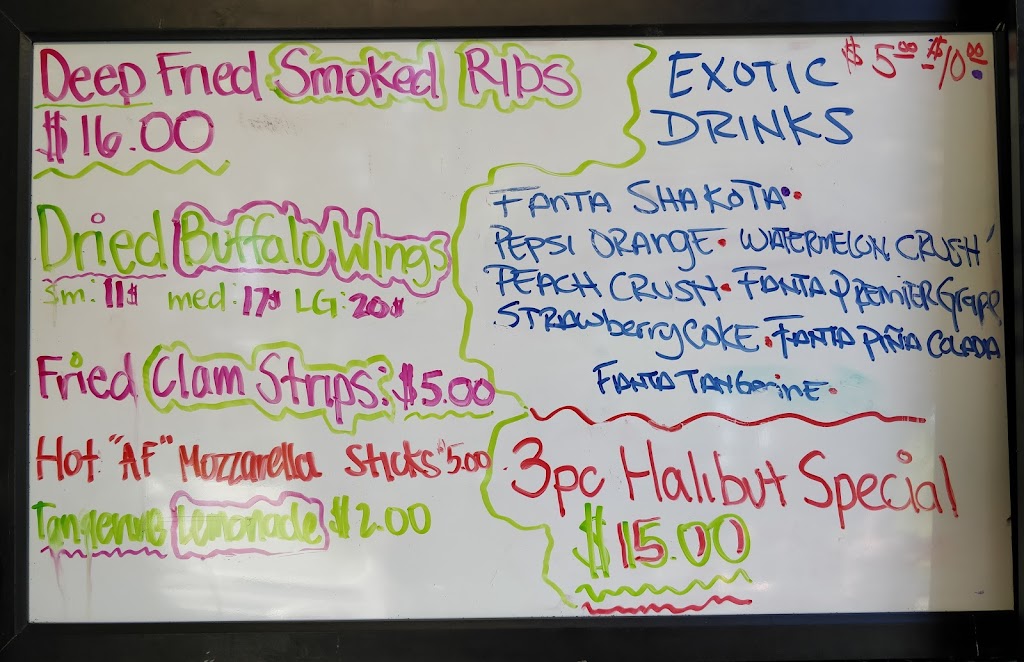 Deep Fried Smoked Ribs
$16.00
Dried Buffalo Wings
Sm: 11$ med: 17$ LG: 20$
Fried Clam Strips: $5.00
Hot "AF" Mozzarella Sticks $5.00
Tangerine Lemonade $2.00
EXOTIC $5.00 $10.00
DRINKS
FANTA SHAKOTA•
PEPSI ORANGE• WATERMELON CRUSH
PEACH CRUSH• FANTA PREMIER Grape
STRAWberry CAKE. FANTA PIÑA COLADA
FANTA TANgerine•
3pc Halibut Special
$15.00